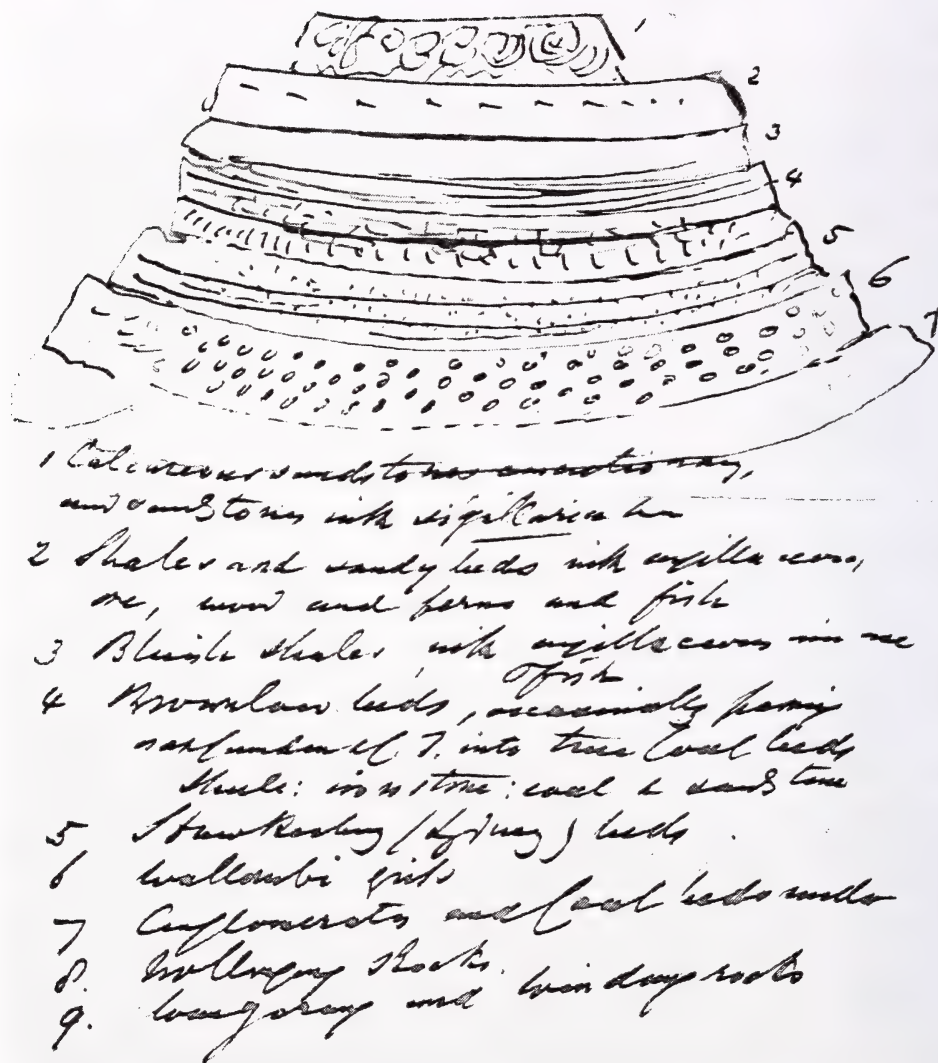 2
3
4
5
6
7
1 Calcareous sandstones concretionary,
and sandstones with sigillaria
2 Shales and sandy beds with argillaceous,
ore, wood and ferns and fish
3 Bluish shales with argillaceous iron ore
& fish
4 Brownlow beds, occasionally passing
into true Coal beds
shale: ironstone: coal & sandstone
5 Hawkesbury (Sydney) beds
6 Wallambi grits
7 Conglomerates and Coal beds under
8. Wollongong Rocks.
9. Wongorang and Windang rocks